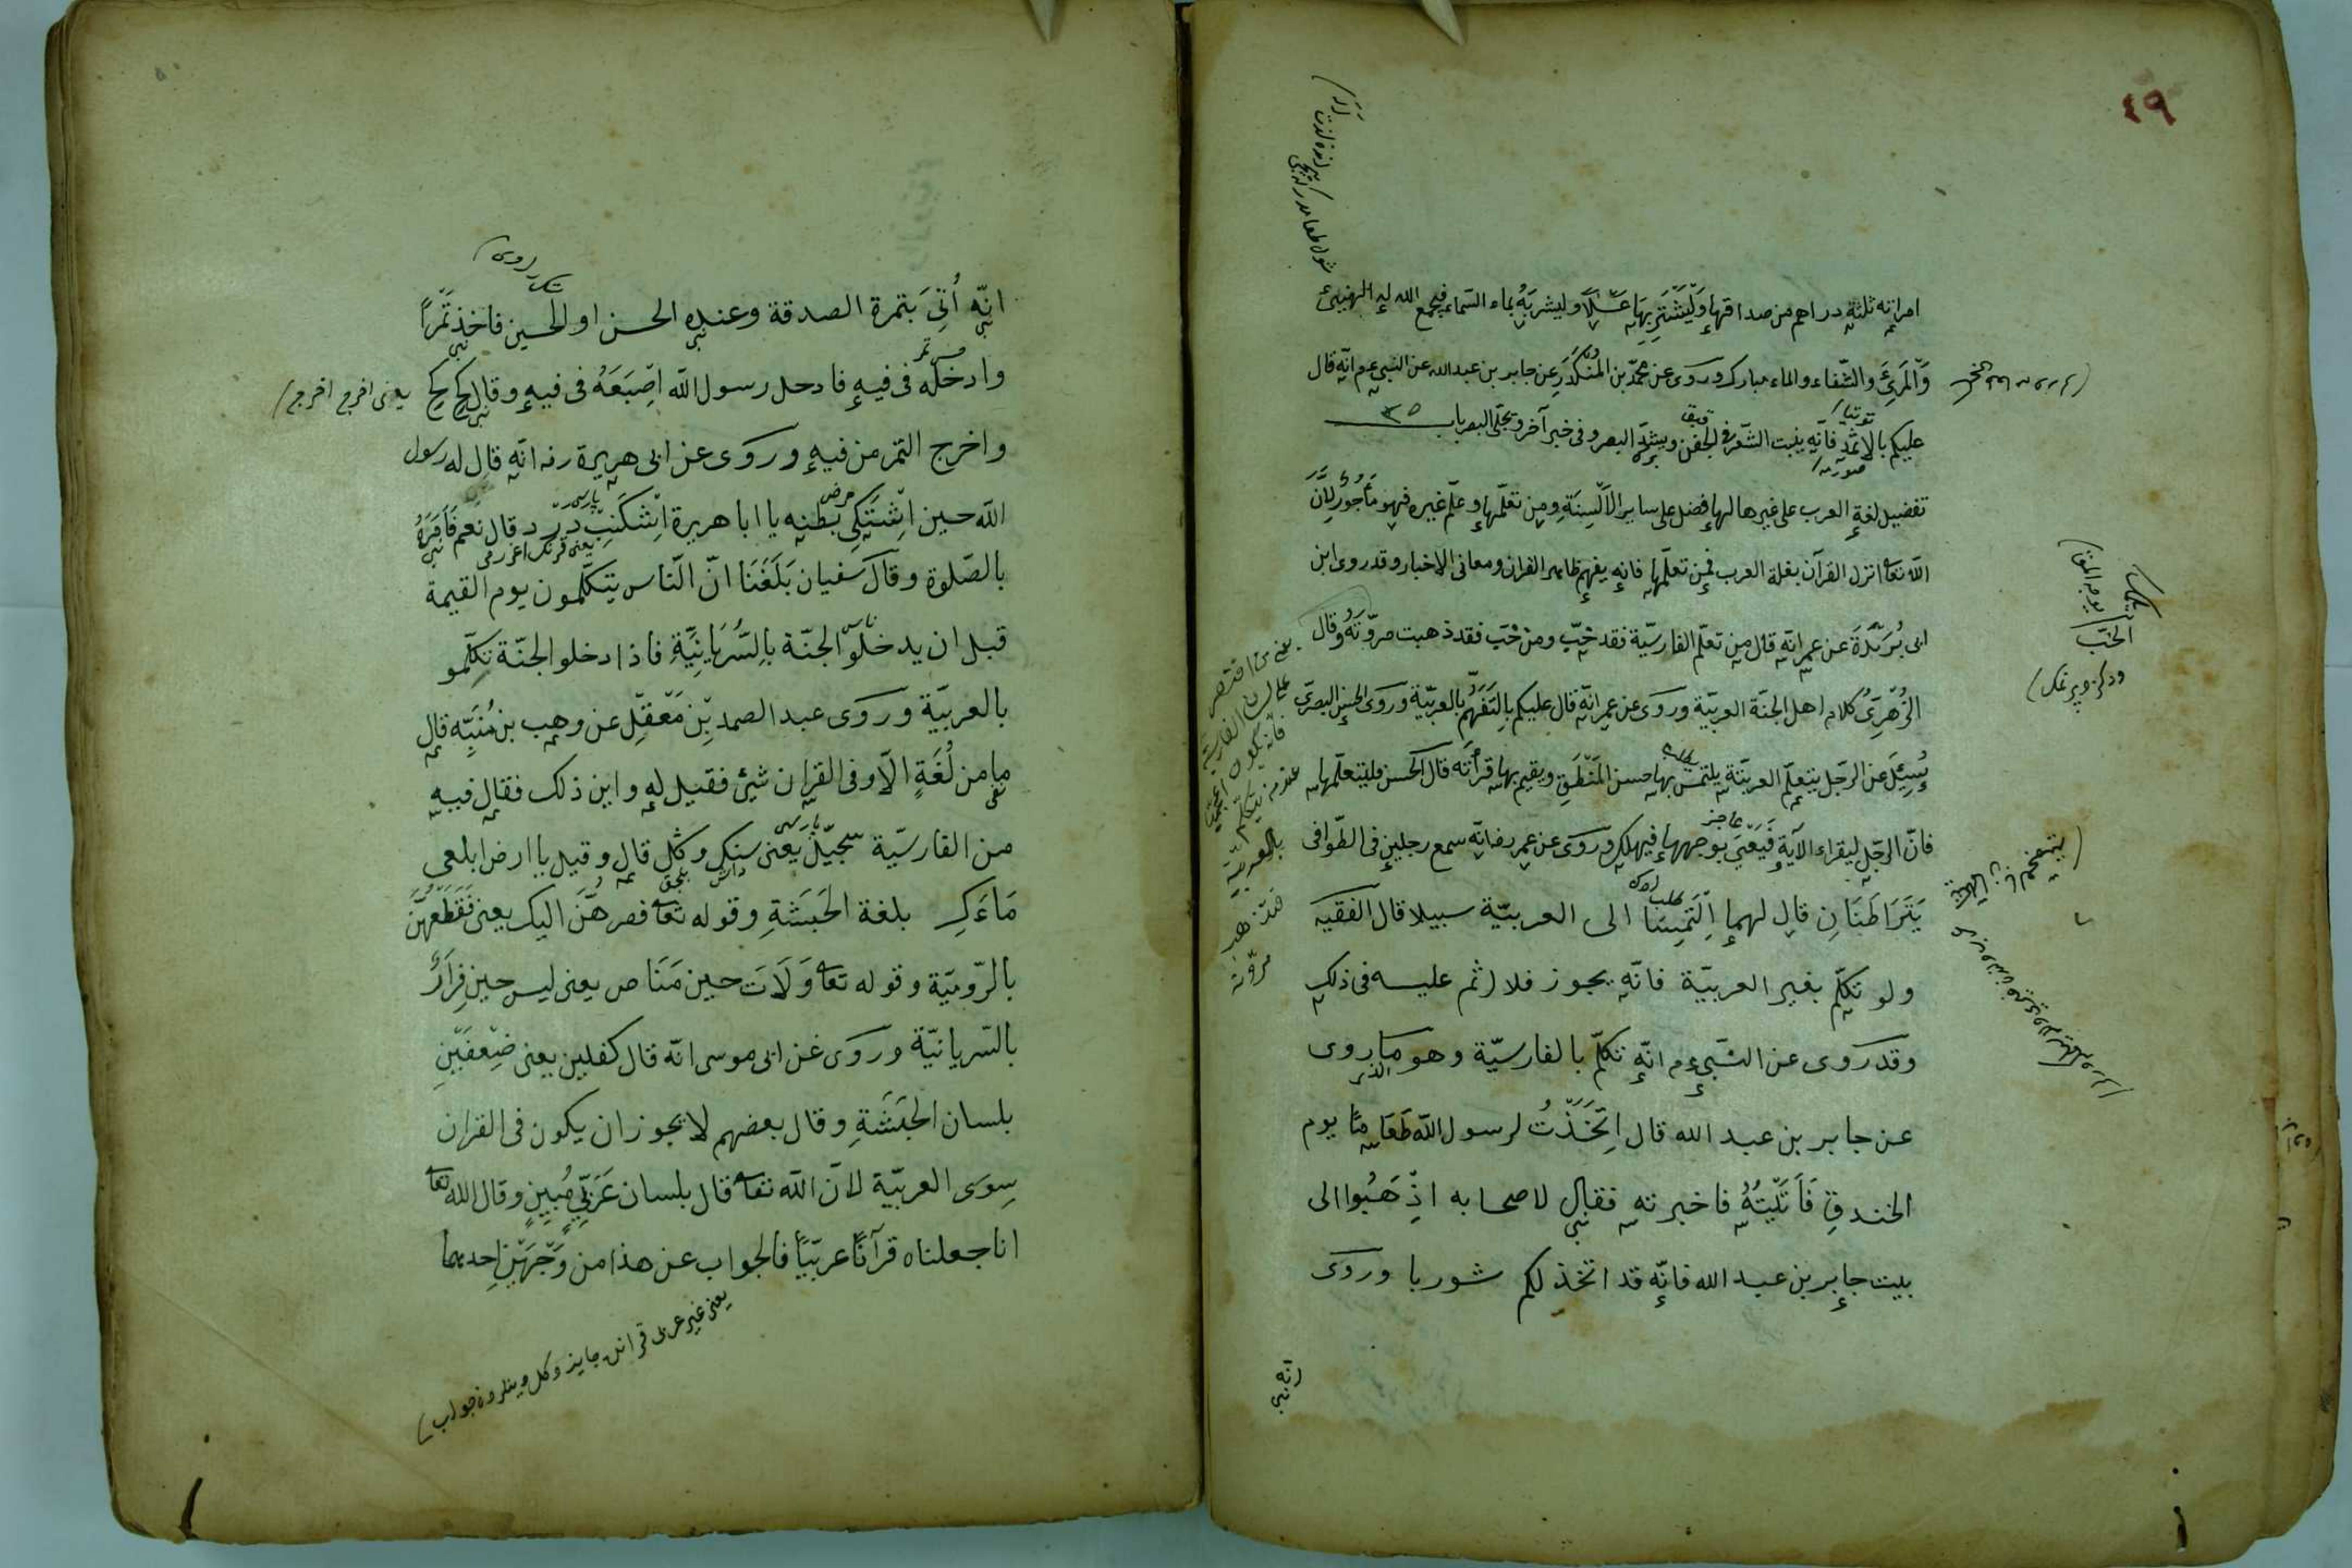 ٤٩
امراته ثلثة دراهم من صداقها وليشتر بها عسلا وليشربه بماء السماء فيجمع الله له الهنيئ
والمرئ والشفاء والماء مبارك وروى عن محمد بن المنكدر عن جابر بن عبد الله عن النبي عم انه قال
توتيا
عليكم بالاثمد فانه ينبت الشعر في الجفن ويشد البصر وفى خبر آخر ويجلى البصر باب ٣٥
تفضيل لغة العرب على غيرها لها فضل على ساير الالسنة ومن تعلمها وعلم غيره فهو مأجور لان
الله تعا انزل القرآن بلغة العرب فمن تعلمها فانه يفهم ظاهر القران ومعانى الاخبار وقد روى ابن
ابى بريدة عن عمر انه قال من تعلم الفارسية فقد خب ومن خب فقد ذهبت مروته وقال
الزهرى كلام اهل الجنة العربية وروى عن عمر انه قال عليكم بالتفهم بالعربية وروى الحسن البصرى
سئل عن الرجل يتعلم العربية يلتمس بها حسن المنطق ويقيم بها قرأته قال الحسن فليتعلمها
عاجز
فان الرجل ليقراء الآية فيعيى بوجهها فيهلك وروى عن عمر رضا انه سمع رجلين فى الطوافى
يتراطنان قال لهما التمسا الى العربية سبيلا قال الفقيه
ولو تكلم بغير العربية فانه يجوز فلا اثم عليه فى ذلك
وقد روى عن النبي عم انه تكلم بالفارسية وهو ما روى
عن جابر بن عبد الله قال اتخذت لرسول الله طعاما يوم
الخندق فأتيته فاخبرته فقال لاصحابه اذهبوا الى
بيت جابر بن عبد الله فانه قد اتخذ لكم شوربا وروى
يعنى من اقتصر
على لسان الفارسية
فانه يكون اعجميا
عند من يتكلم
بالعربية
فقد ذهب
مروته
انه اتى بتمرة الصدقة وعنده الحسن او الحسين فاخذ تمرا
وادخله فى فيه فادخل رسول الله اصبعه فى فيه وقال كخ كخ يعنى اخرج اخرج
واخرج التمر من فيه وروى عن ابى هريرة رضه انه قال له رسول
الله حين اشتكى بطنه يا ابا هريرة اشكنب درد قال نعم فامره
بالصلوة وقال سفيان بلغنا ان الناس يتكلمون يوم القيمة
قبل ان يدخلوا الجنة بالسريانية فاذا دخلو الجنة تكلمو
بالعربية وروى عبد الصمد بن معقل عن وهب بن منبه قال
ما من لغة الا وفى القران شيئ فقيل له واين ذلك فقال فيه
من الفارسية سجيل يعنى سنك وكل قال وقيل يا ارض ابلعى
ماءك بلغة الحبشة وقوله تعا فصرهن اليك يعنى فقطعهن
بالرومية وقوله تعا ولات حين مناص يعنى ليس حين فرار
بالسريانية وروى عن ابى موسى انه قال كفلين يعنى ضعفين
بلسان الحبشة وقال بعضهم لا يجوز ان يكون فى القران
سوى العربية لان الله تعا قال بلسان عربى مبين وقال الله تعا
انا جعلناه قرآنا عربيا فالجواب عن هذا من وجهين احديهما